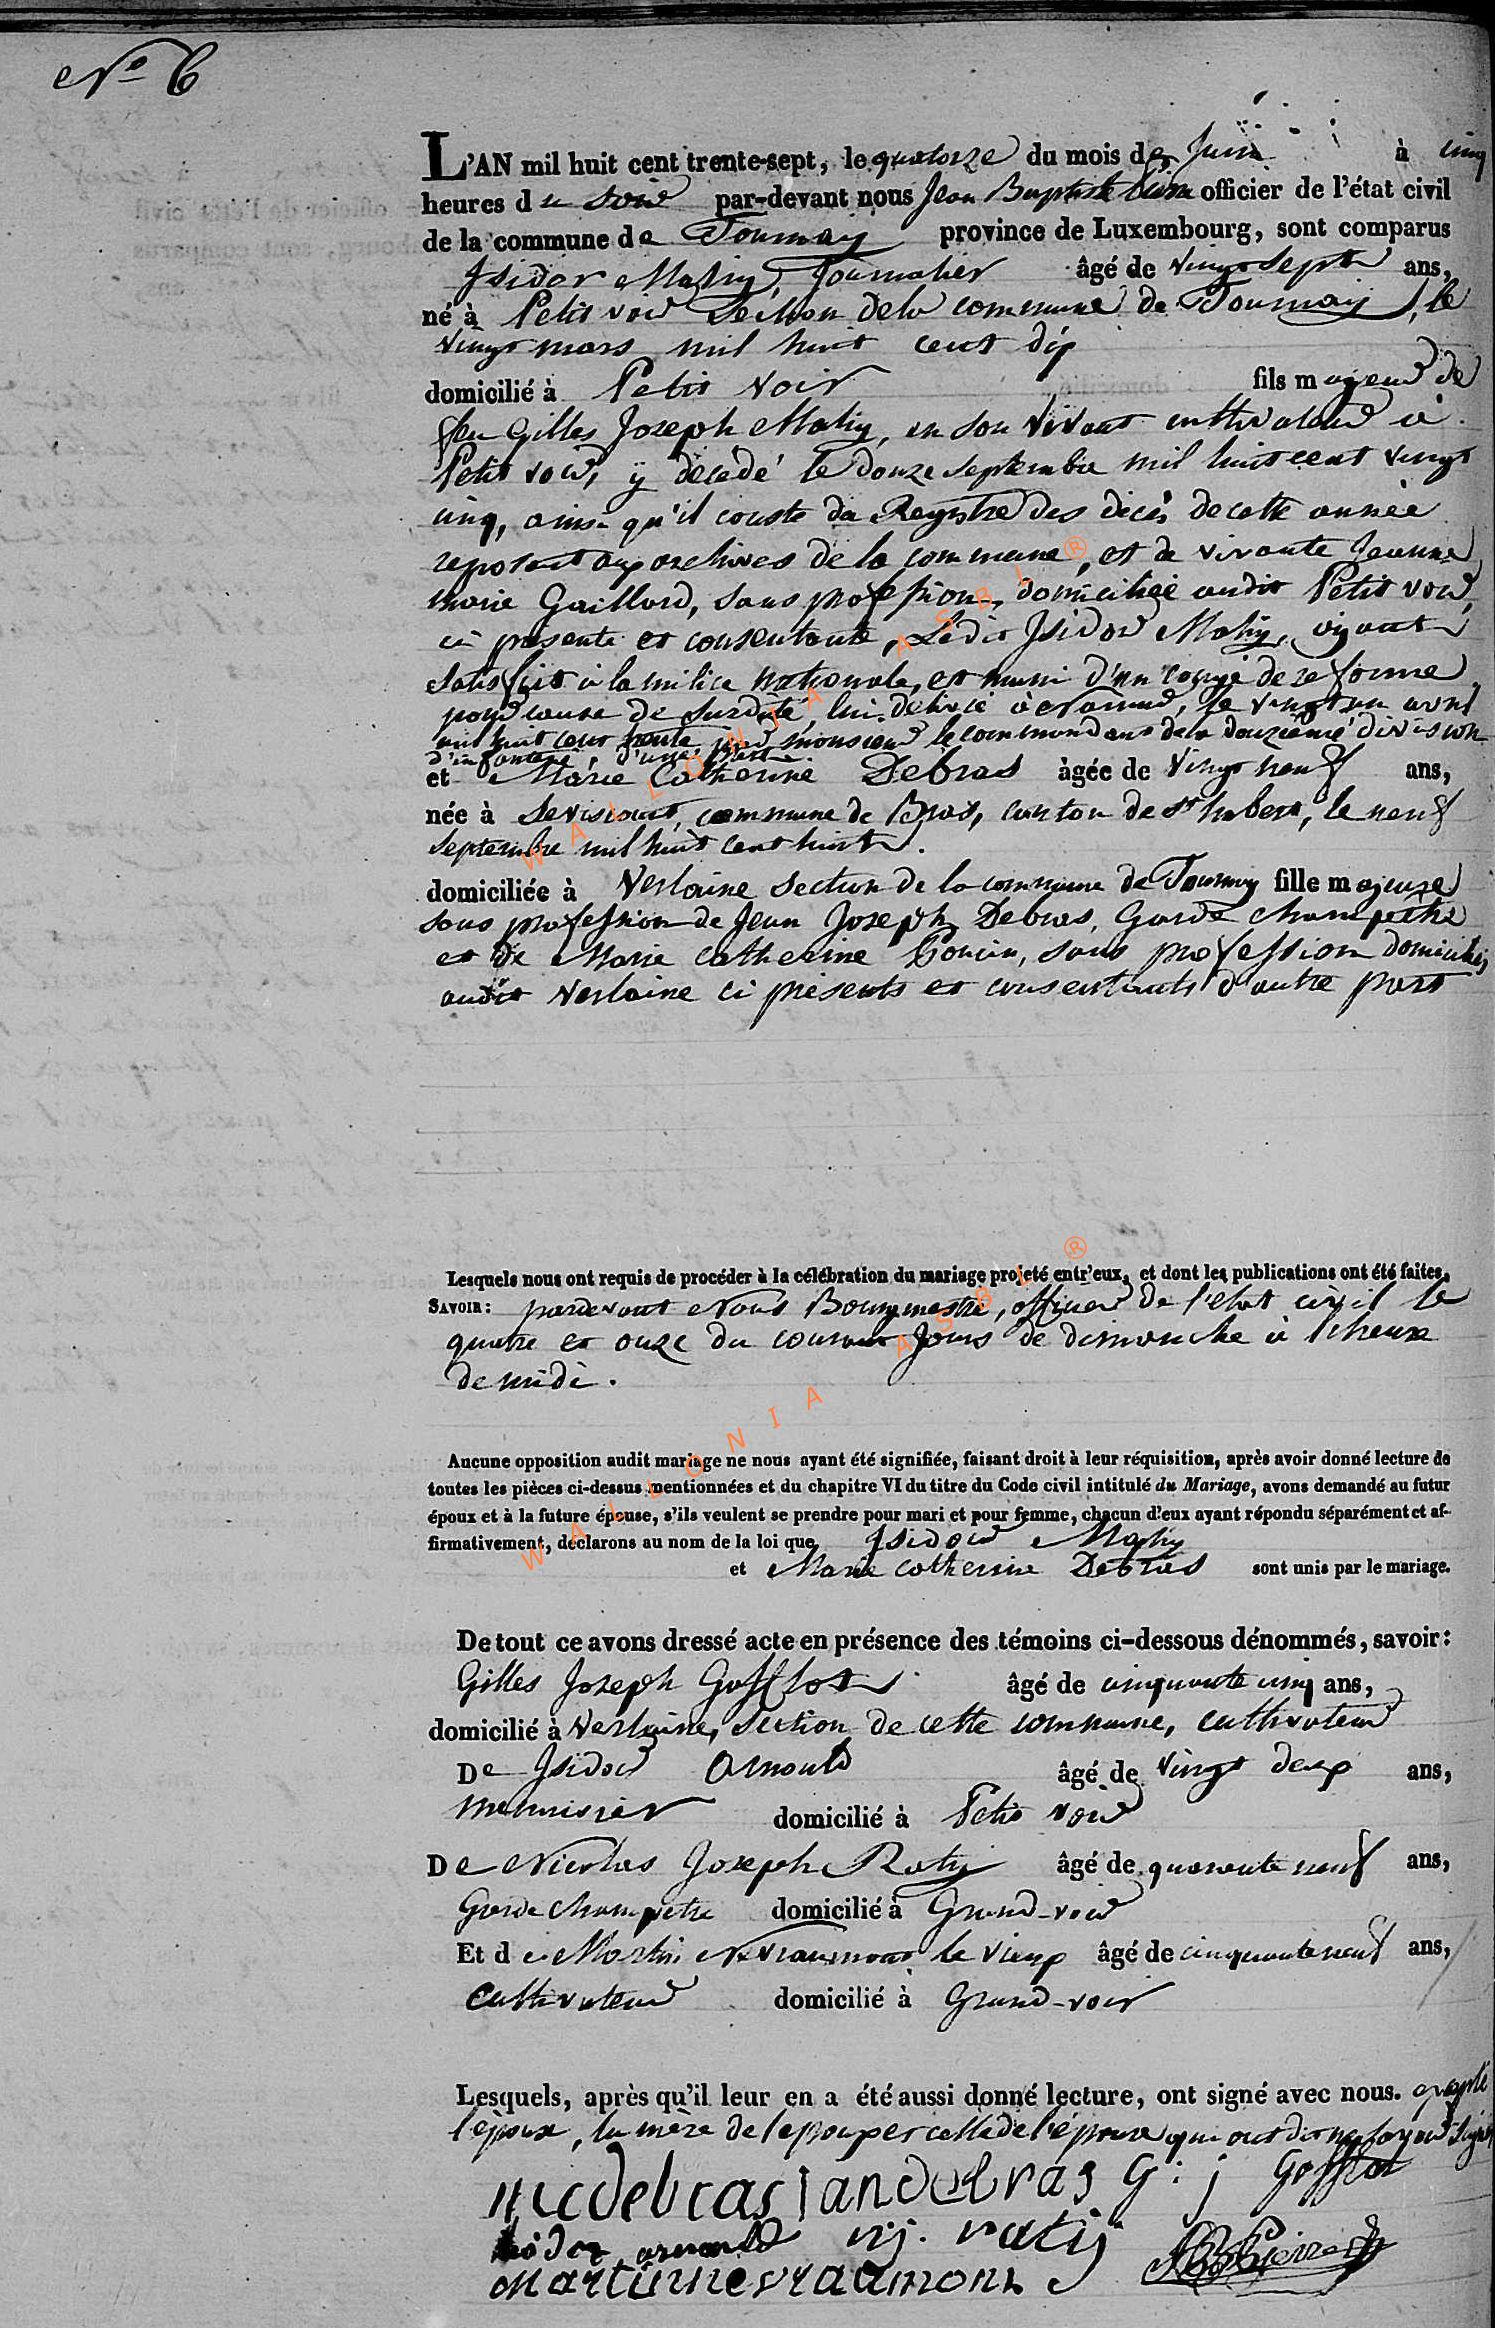 No 6
L'AN mil huit cent trente-sept, le quatorze du mois de Juin à cinq
heures du soir par-devant nous Jean Baptiste officier de l'état civil
de la commune de Tournay province de Luxembourg, sont comparus
Isidor Mahy, Journalier âgé de vingt sept ans,
né à Petit voir Section de la commune de Tournay, le
vingt mars mil huit cent dix
domicilié à Petit voir fils majeur de
feu Gilles Joseph Mahy, en son vivant cultivateur à
Petit voir, y décédé le douze septembre mil huit cent vingt
cinq, ainsi qu'il conste du Registre des décès de cette année
reposant aux archives de la commune, et de vivante Jeanne
marie Gaillard, sans profession, domiciliée audit Petit voir,
ci présente et consentante, Ledit Isidor Mahy, ayant
satisfait à la milice nationale, et muni d'un congé de reforme
pour cause de surdité, lui délivré à Namur, le vingt un avril
mil huit cent trente par monsieur le commandant de la douzième division
d'infanterie, d'une part
et Marie Catherine Debras âgée de vingt neuf ans,
née à Seviscourt, commune de Bras, canton de St hubert, le neuf
septembre mil huit cent huit.
domiciliée à Verlaine section de la commune de Tournay fille majeure
sans profession de Jean Joseph Debras, Garde champêtre
et de Marie Catherine Poncin, sans profession domiciliés
audit Verlaine ci présents et consentants d'autre part
Lesquels nous ont requis de procéder à la célébration du mariage projeté entr'eux, et dont les publications ont été faites.
SAVOIR: pardevant Nous Bourgmestre, officier de l'état civil le
quatre et onze du courant Jours de dimanche à l'heure
de midi.
Aucune opposition audit mariage ne nous ayant été signifiée, faisant droit à leur réquisition, après avoir donné lecture de
toutes les pièces ci-dessus mentionnées et du chapitre VI du titre du Code civil intitulé du Mariage, avons demandé au futur
époux et à la future épouse, s'ils veulent se prendre pour mari et pour femme, chacun d'eux ayant répondu séparément et af-
firmativement, déclarons au nom de la loi que Isidor Mahy
et Marie Catherine Debras sont unis par le mariage.
De tout ce avons dressé acte en présence des témoins ci-dessous dénommés, savoir:
Gilles Joseph Gofflot âgé de cinquante cinq ans,
domicilié à Verlaine, Section de cette commune, cultivateur
De Isidor Arnould âgé de vingt deux ans,
menuisier domicilié à Petit voir
De Nicolas Joseph Raty âgé de quarante neuf ans,
Garde champetre domicilié à Grand-voir
Et de Martin Nevraumont le vieux âgé de cinquante neuf ans,
cultivateur domicilié à Grand-voir
Lesquels, après qu'il leur en a été aussi donné lecture, ont signé avec nous. excepté
l'époux, la mère de l'époux et celle de l'épouse qui ont dit ne savoir Signer
mc debras jan debras G: j Gofflot
isidor arnould nj. raty
Martin nevraumont
WALLONIA ASBL ®
WALLONIA ASBL ®